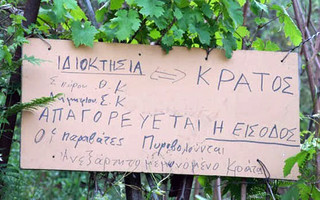 ΙΔΙΟΚΤΗΣΙΑ ⇔ ΚΡΑΤΟΣ
Σπύρου. Θ. Κ
Δημητρίου. Σ. Κ
ΑΠΑΓΟΡΕΥΕΤΑΙ Η ΕΙΣΟΔΟΣ
Οι παραβάτες Πυροβολούνται
Ανεξάρτητο μεμονομένο Κράτος